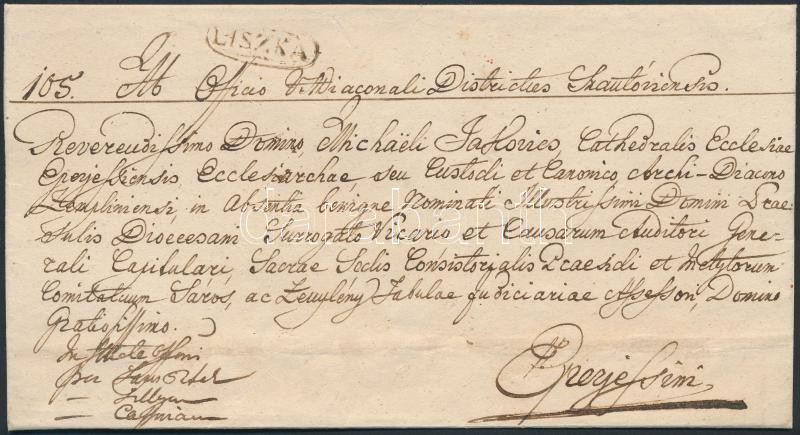 LISZKA
105. Ab Officio V. Diaconali Districtus
Reverendissimo Domino, Michaëli Jaskovics, Cathedralis Ecclesiae
Eperjessiensis Ecclesiarchae seu Custodi et Canonico Archi-Diacono
Zempliniensi, in Absentia benigne Nominati Illustrissimi Domini Prae-
sulis Dioecesani Surrogato Vicario et Causarum Auditori Gene-
rali Capitulari, Sacrae Sedis Consistorialis Praesidi et Inclytorum
Comitatuum Sáros, ac Zemplény Tabulae Judiciariae Assessori, Domino
Gratiosissimo.
per
Eperjessini